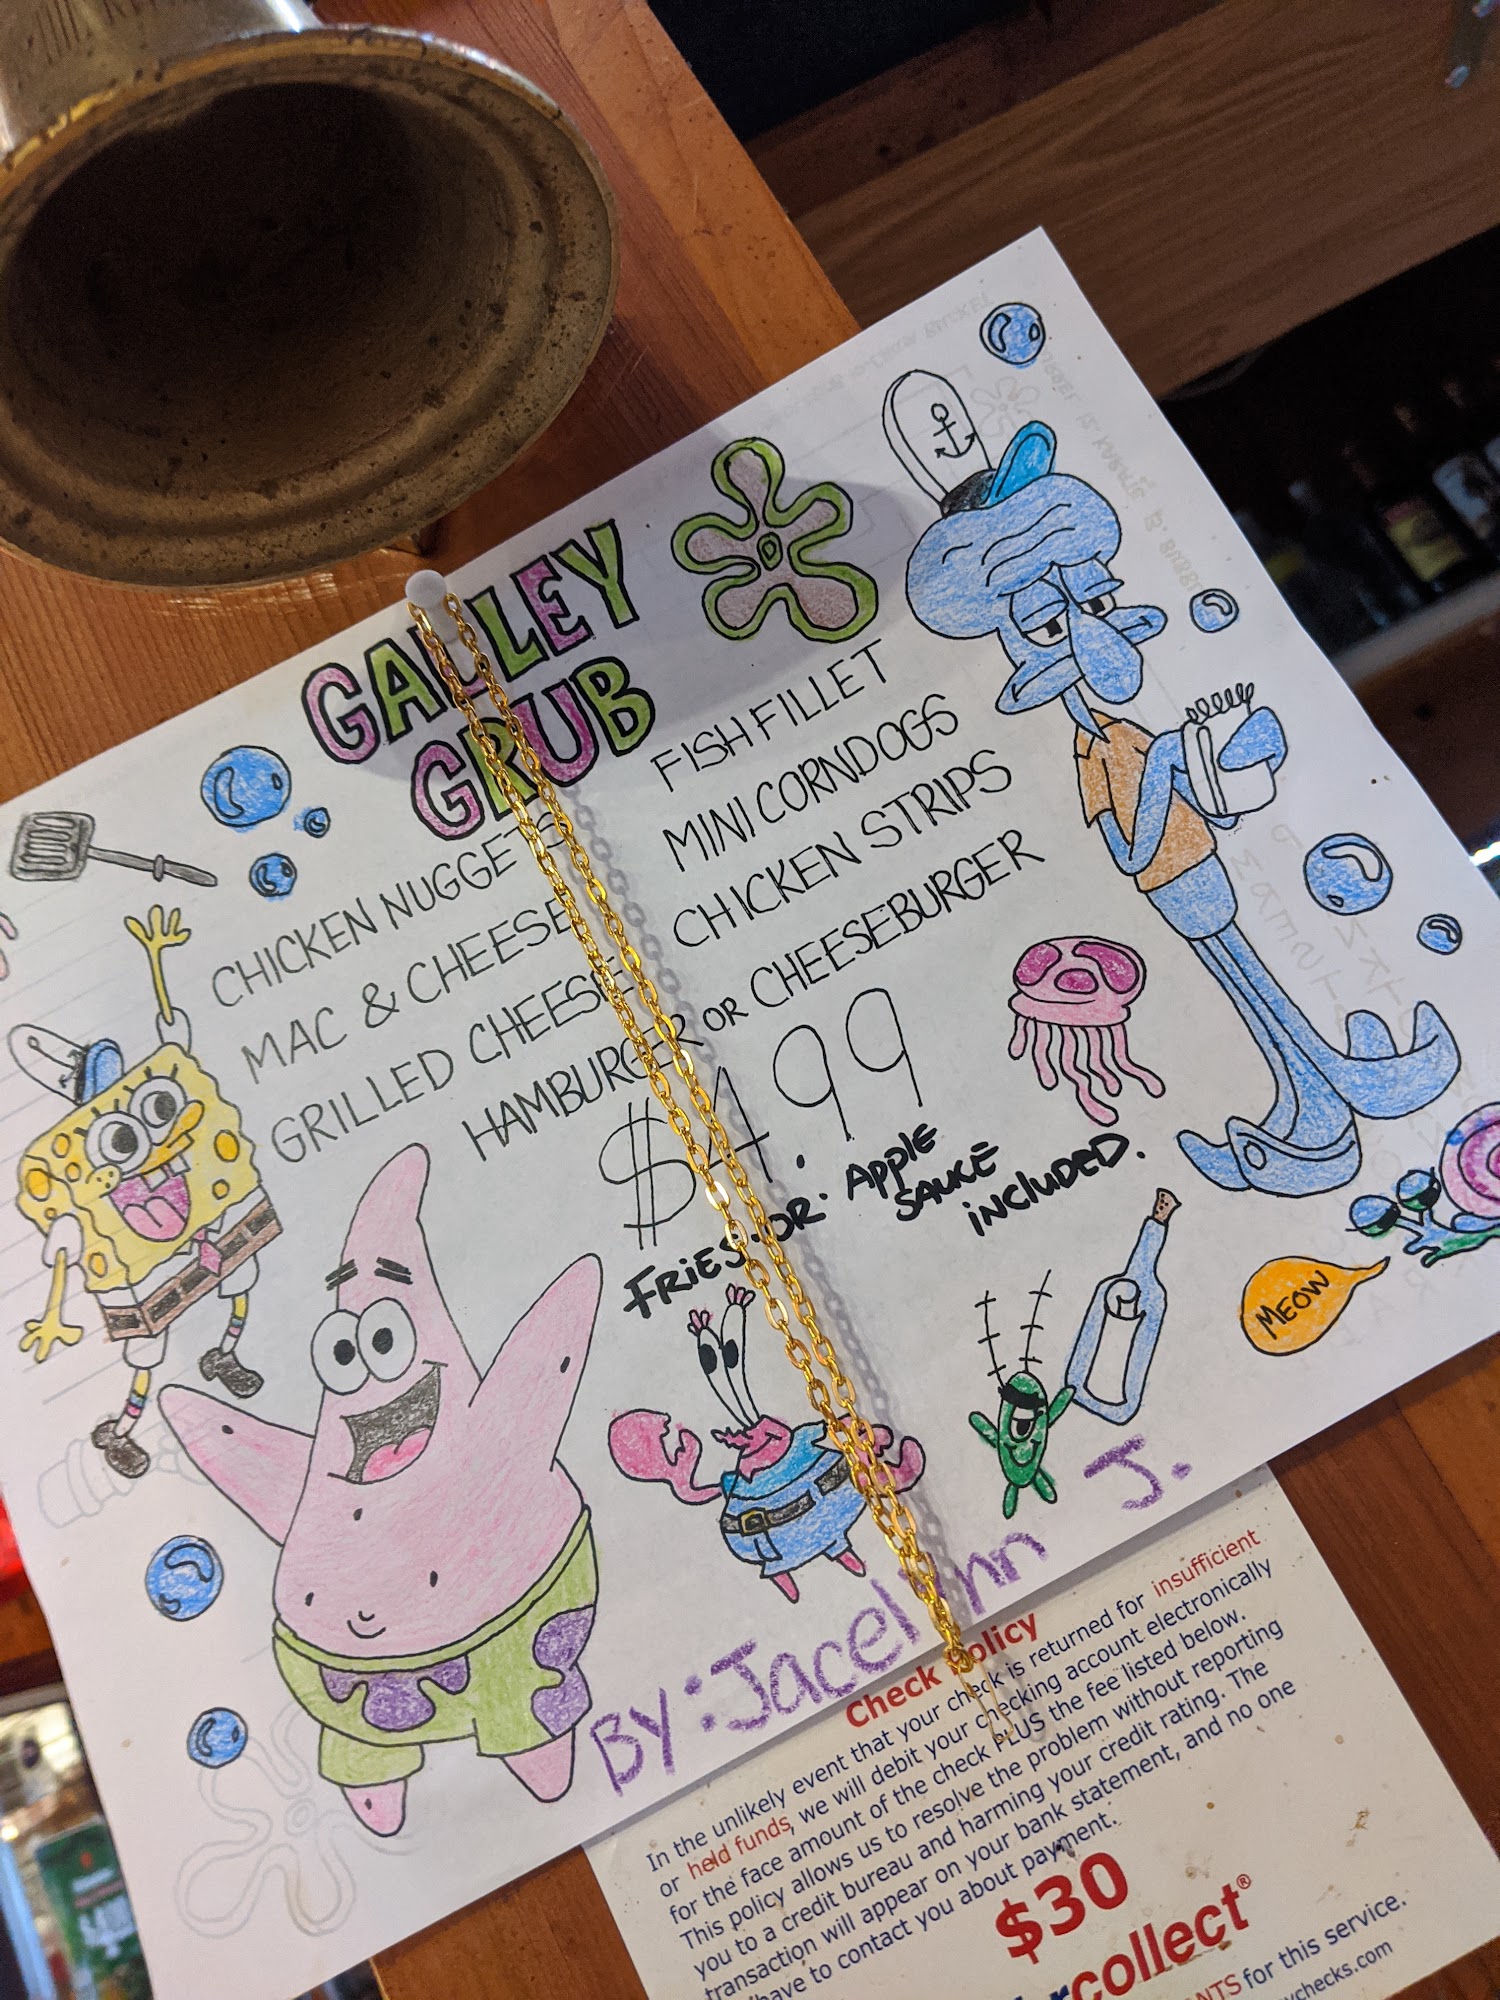 GALLEY
GRUB
CHICKEN NUGGETS
MAC & CHEESE
GRILLED CHEESE
FISH FILLET
MINI CORNDOGS
CHICKEN STRIPS
HAMBURGER OR CHEESEBURGER
$4.99
FRiES OR Apple
SAUCE
iNCLUDED.
MEOW
BY: Jacelynn J.
Check Policy
In the unlikely event that your check is returned for insufficient
or held funds, we will debit your checking account electronically
for the face amount of the check PLUS the fee listed below.
This policy allows us to resolve the problem without reporting
you to a credit bureau and harming your credit rating. The
transaction will appear on your bank statement, and no one
have to contact you about payment.
$30
collect®
for this service.
checks.com